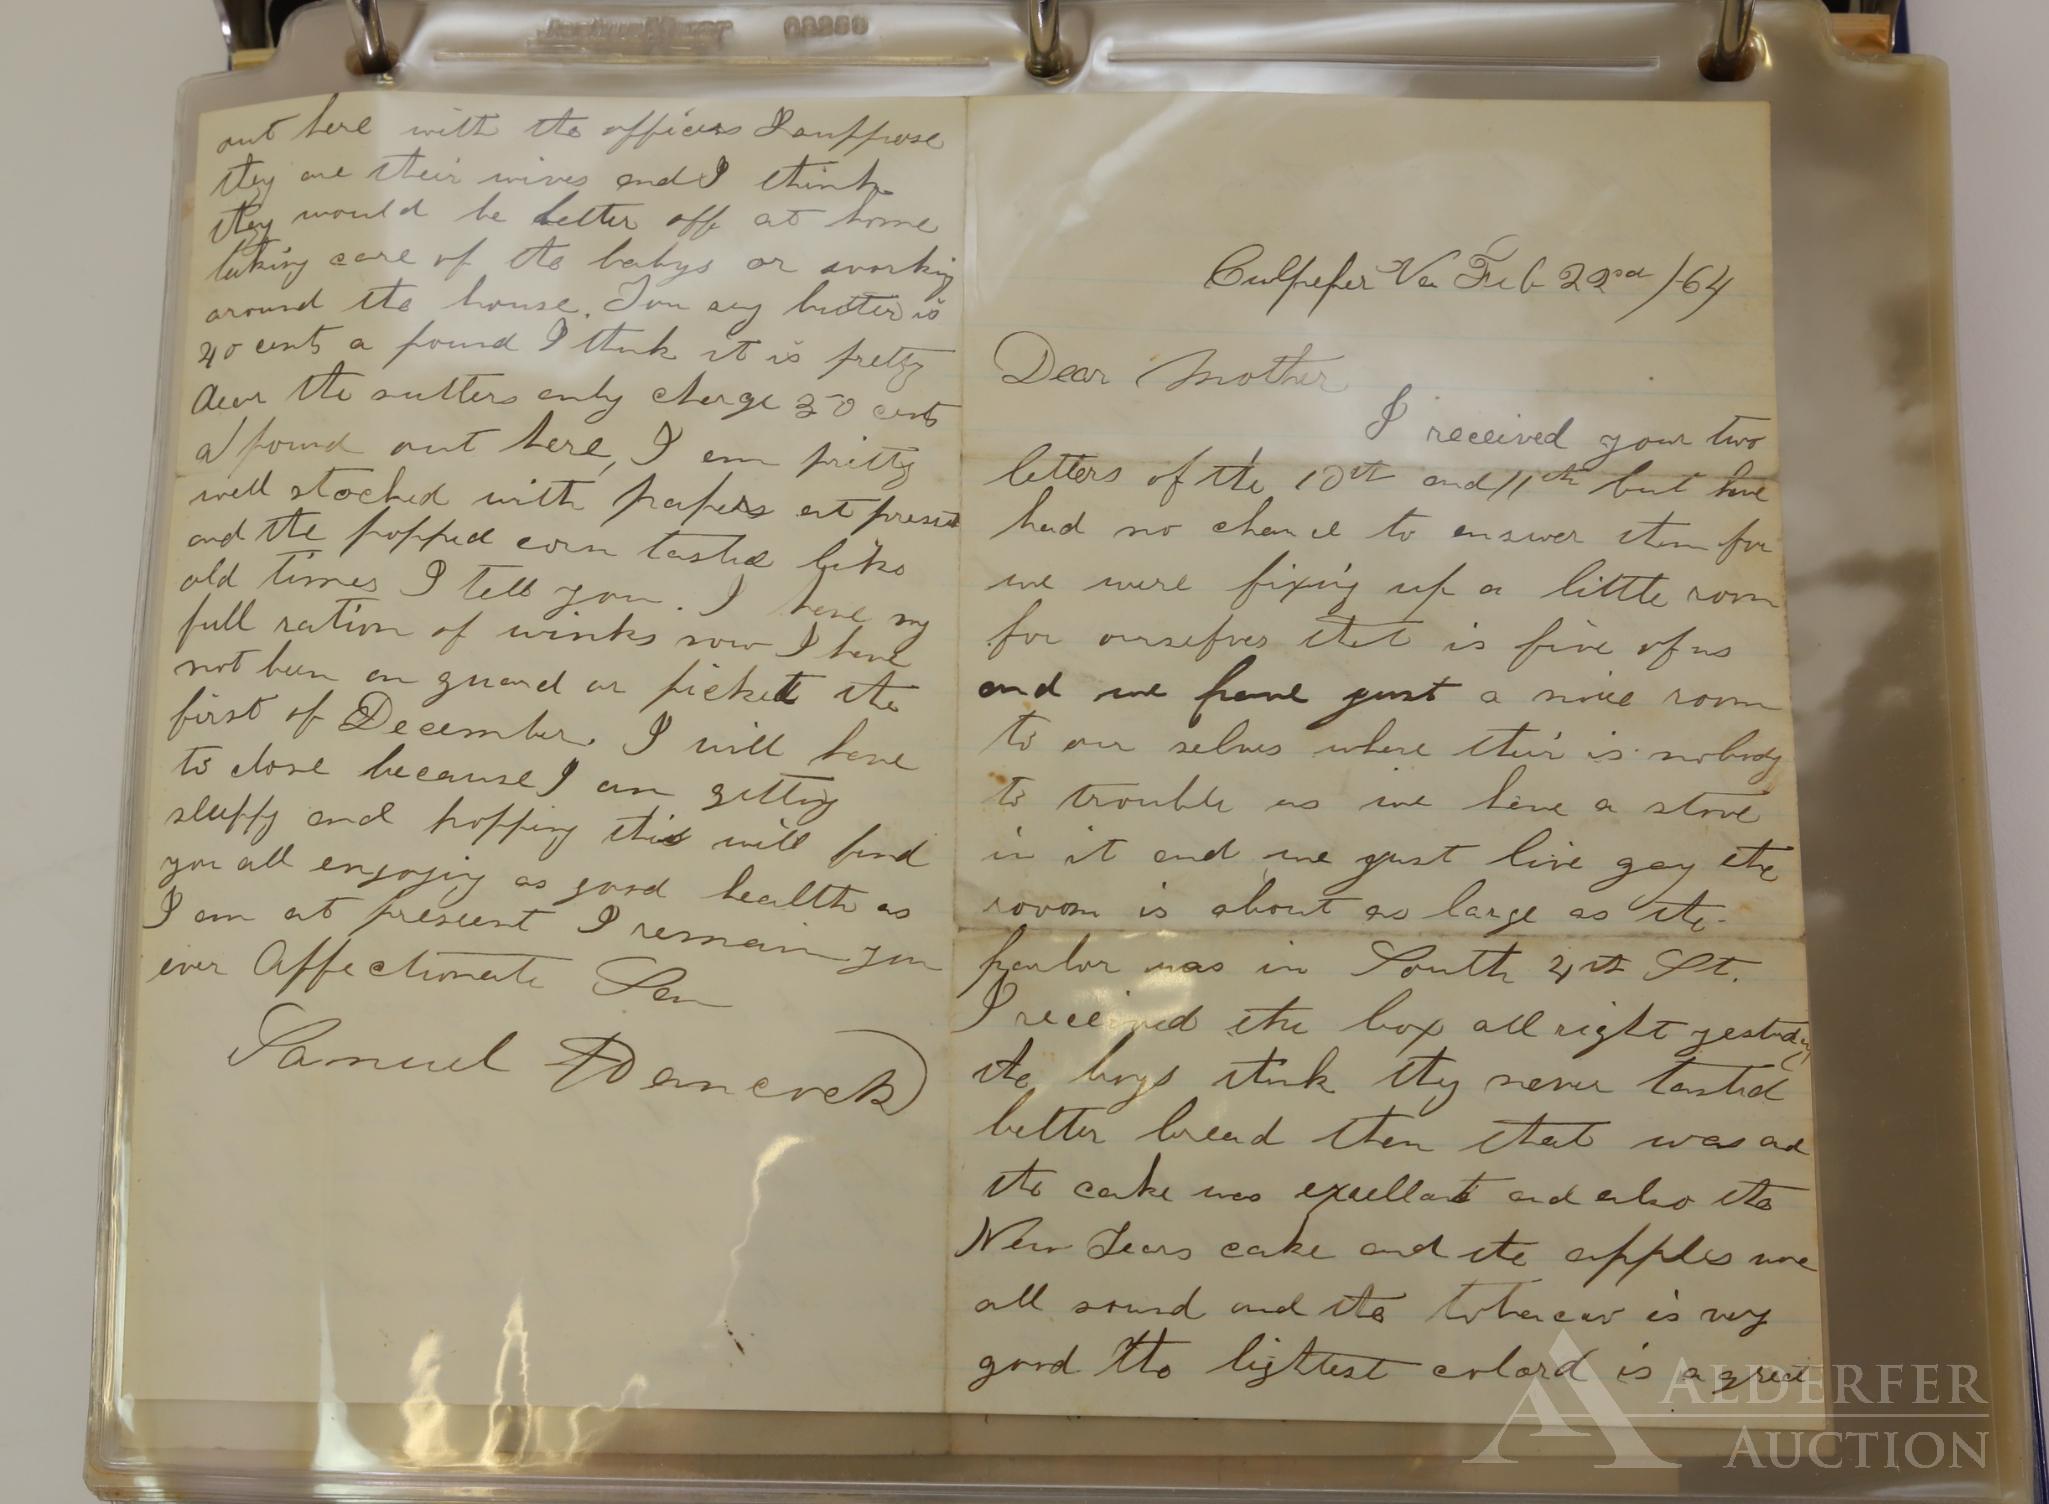 out here with the officers I suppose
they are their wives and I think
they would be better off at home
taking care of the babys or working
around the house. You say butter is
40 cents a pound I think it is pretty
dear the sutlers only charge 50 cents
a pound out here, I am pritty
well stocked with papers at present
and the popped corn tasted like
old times I tell you. I have my
full ration of winks now I have
not been on guard or picket the
first of December. I will have
to close because I am getting
sleeppy and hopping this will find
you all engoying as good health as
I am at present I remain you
ever Affectionate Son
Samuel Hancock
Culpeper Va Feb 22nd /64
Dear Mother
I received your two
letters of the 10th and 11th but have
had no chance to answer them for
we were fixing up a little room
for ourselves that is five of us
and we have just a nice room
to our selves where their is nobody
to trouble us we have a stove
in it and we just live gay the
rooom is about as large as the
parlor was in South 4th St.
I received the box all right yesterday
the boys think they never tasted
better bread then that was and
the cake was excellant and also the
New Years cake and the apples were
all sound and the tobacco is very
good the lightest colard is a great
ALDERFER
AUCTION